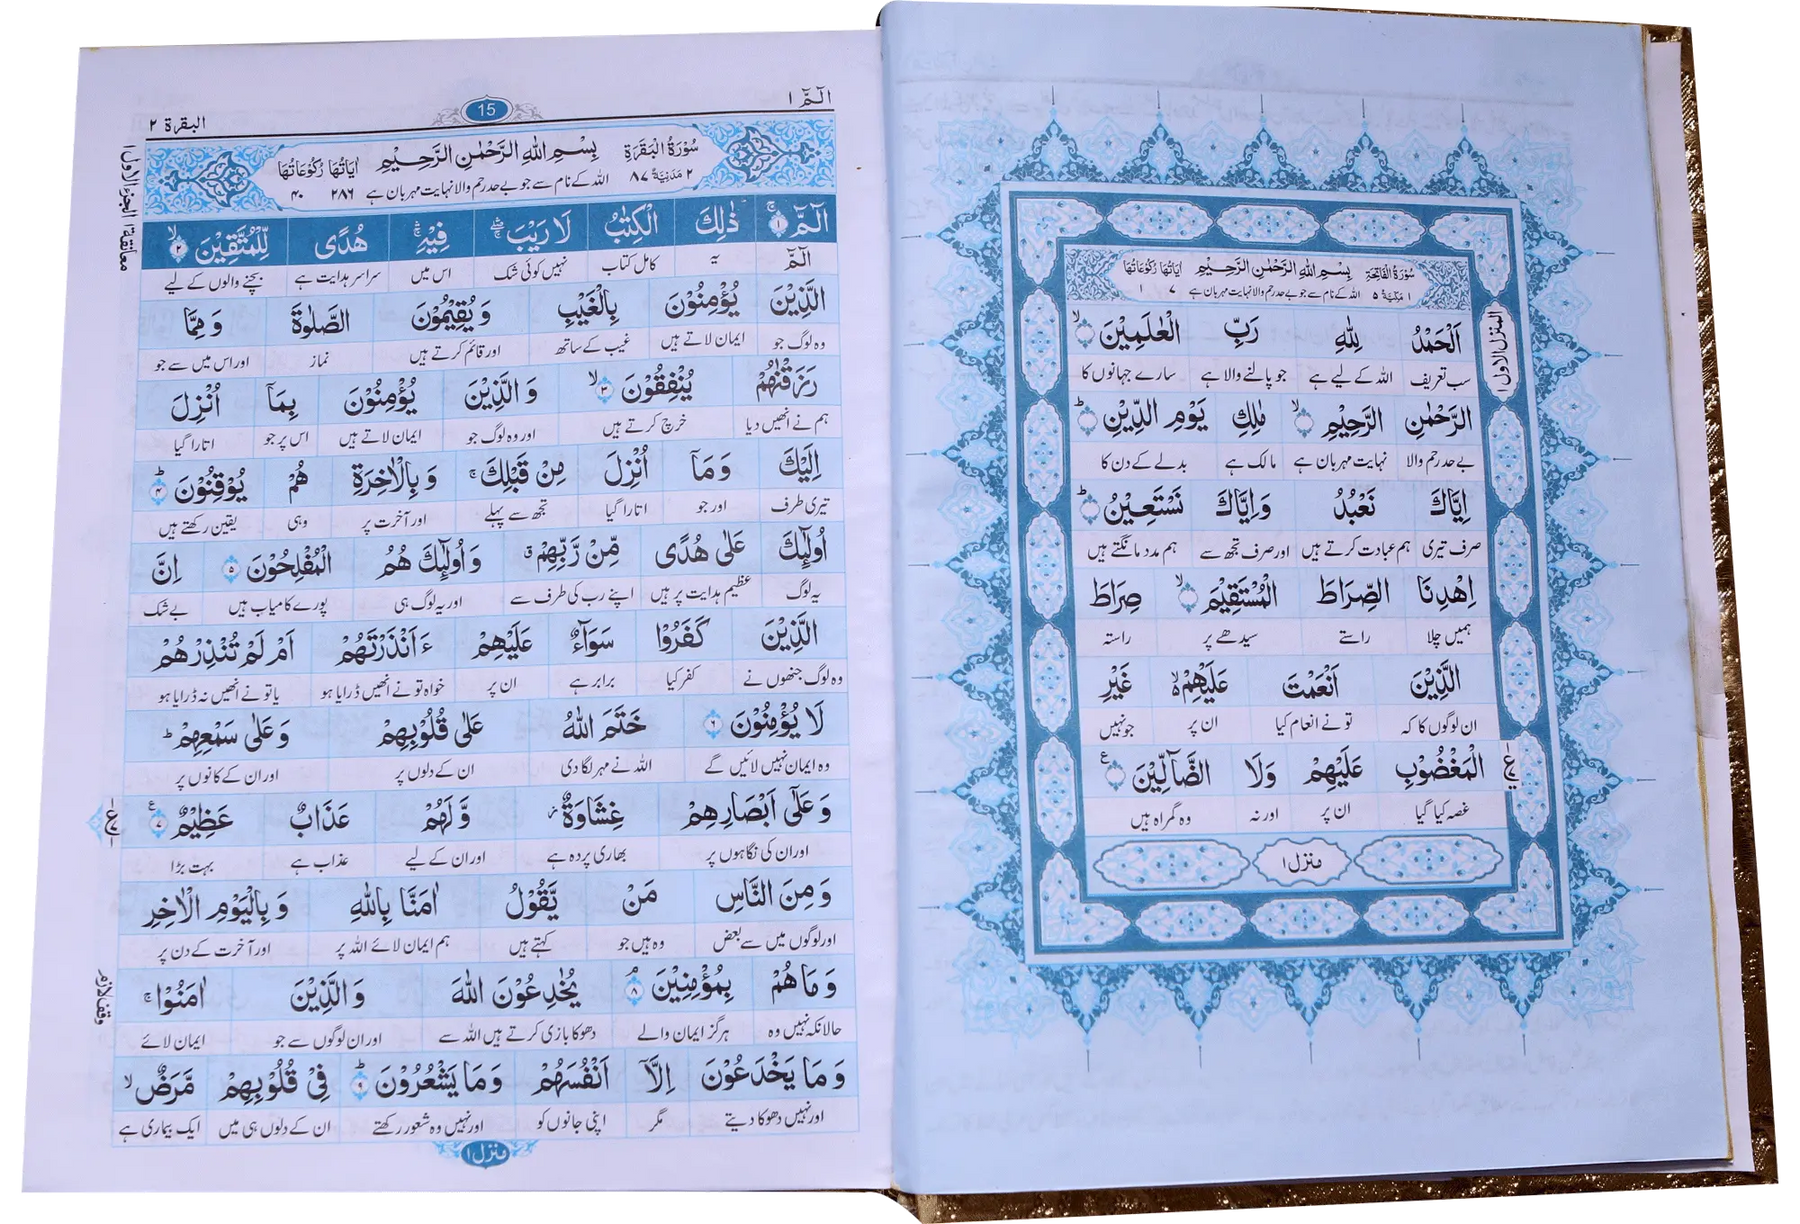 سُوْرَةُ الْفَاتِحَةِ بِسْمِ اللهِ الرَّحْمٰنِ الرَّحِيْمِ اٰيَاتُهَا رُكُوْعَاتُهَا
١ مَكِّيَّةٌ ٥ اللہ کے نام سے جو بے حد رحم والا نہایت مہربان ہے ٧ ١
المنزل الاول ١
اَلْحَمْدُ لِلّٰهِ رَبِّ الْعٰلَمِيْنَ
سب تعریف اللہ کے لیے ہے جو پالنے والا ہے سارے جہانوں کا
الرَّحْمٰنِ الرَّحِيْمِ مٰلِكِ يَوْمِ الدِّيْنِ
بے حد رحم والا نہایت مہربان ہے مالک ہے بدلے کے دن کا
اِيَّاكَ نَعْبُدُ وَاِيَّاكَ نَسْتَعِيْنُ
صرف تیری ہم عبادت کرتے ہیں اور صرف تجھ سے ہم مدد مانگتے ہیں
اِهْدِنَا الصِّرَاطَ الْمُسْتَقِيْمَ صِرَاطَ
ہمیں چلا راستے سیدھے پر راستہ
الَّذِيْنَ اَنْعَمْتَ عَلَيْهِمْ غَيْرِ
ان لوگوں کا کہ تو نے انعام کیا ان پر جو نہیں
الْمَغْضُوْبِ عَلَيْهِمْ وَلَا الضَّآلِّيْنَ
غصہ کیا گیا ان پر اور نہ وہ گمراہ ہیں
منزل ١
الٓمّٓ ١ 15 البقرة ٢
سُوْرَةُ الْبَقَرَةِ بِسْمِ اللهِ الرَّحْمٰنِ الرَّحِيْمِ اٰيَاتُهَا رُكُوْعَاتُهَا
٢ مَدَنِيَّةٌ ٨٧ اللہ کے نام سے جو بے حد رحم والا نہایت مہربان ہے ٢٨٦ ٤٠
الٓمّٓ ١ ذٰلِكَ الْكِتٰبُ لَا رَيْبَ فِيْهِ هُدًى لِّلْمُتَّقِيْنَ ٢
الٓمّٓ یہ کامل کتاب نہیں کوئی شک اس میں سراسر ہدایت ہے بچنے والوں کے لیے
الَّذِيْنَ يُؤْمِنُوْنَ بِالْغَيْبِ وَيُقِيْمُوْنَ الصَّلٰوةَ وَمِمَّا
وہ لوگ جو ایمان لاتے ہیں غیب کے ساتھ اور قائم کرتے ہیں نماز اور اس میں سے جو
رَزَقْنٰهُمْ يُنْفِقُوْنَ ٣ وَالَّذِيْنَ يُؤْمِنُوْنَ بِمَآ اُنْزِلَ
ہم نے انھیں دیا خرچ کرتے ہیں اور وہ لوگ جو ایمان لاتے ہیں اس پر جو اتارا گیا
اِلَيْكَ وَمَآ اُنْزِلَ مِنْ قَبْلِكَ وَبِالْاٰخِرَةِ هُمْ يُوْقِنُوْنَ ٤
تیری طرف اور جو اتارا گیا تجھ سے پہلے اور آخرت پر وہی یقین رکھتے ہیں
اُولٰٓئِكَ عَلٰى هُدًى مِّنْ رَّبِّهِمْ وَاُولٰٓئِكَ هُمُ الْمُفْلِحُوْنَ ٥ اِنَّ
یہ لوگ عظیم ہدایت پر ہیں اپنے رب کی طرف سے اور یہ لوگ ہی پورے کامیاب ہیں بے شک
الَّذِيْنَ كَفَرُوْا سَوَآءٌ عَلَيْهِمْ ءَاَنْذَرْتَهُمْ اَمْ لَمْ تُنْذِرْهُمْ
وہ لوگ جنھوں نے کفر کیا برابر ہے ان پر خواہ تو نے انھیں ڈرایا ہو یا تو نے انھیں نہ ڈرایا ہو
لَا يُؤْمِنُوْنَ ٦ خَتَمَ اللهُ عَلٰى قُلُوْبِهِمْ وَعَلٰى سَمْعِهِمْ
وہ ایمان نہیں لائیں گے اللہ نے مہر لگا دی ان کے دلوں پر اور ان کے کانوں پر
وَعَلٰٓى اَبْصَارِهِمْ غِشَاوَةٌ وَّلَهُمْ عَذَابٌ عَظِيْمٌ ٧
اور ان کی نگاہوں پر بھاری پردہ ہے اور ان کے لیے عذاب ہے بہت بڑا
وَمِنَ النَّاسِ مَنْ يَّقُوْلُ اٰمَنَّا بِاللهِ وَبِالْيَوْمِ الْاٰخِرِ
اور لوگوں میں سے بعض وہ ہیں جو کہتے ہیں ہم ایمان لائے اللہ پر اور آخرت کے دن پر
وَمَا هُمْ بِمُؤْمِنِيْنَ ٨ يُخٰدِعُوْنَ اللهَ وَالَّذِيْنَ اٰمَنُوْا
حالانکہ نہیں وہ ہرگز ایمان والے دھوکا بازی کرتے ہیں اللہ سے اور ان لوگوں سے جو ایمان لائے
وَمَا يَخْدَعُوْنَ اِلَّآ اَنْفُسَهُمْ وَمَا يَشْعُرُوْنَ ٩ فِيْ قُلُوْبِهِمْ مَّرَضٌ
اور نہیں دھوکا دیتے مگر اپنی جانوں کو اور نہیں وہ شعور رکھتے ان کے دلوں ہی میں ایک بیماری ہے
منزل ١
معانقة ١ الجزء الاول ١
وقف لازم